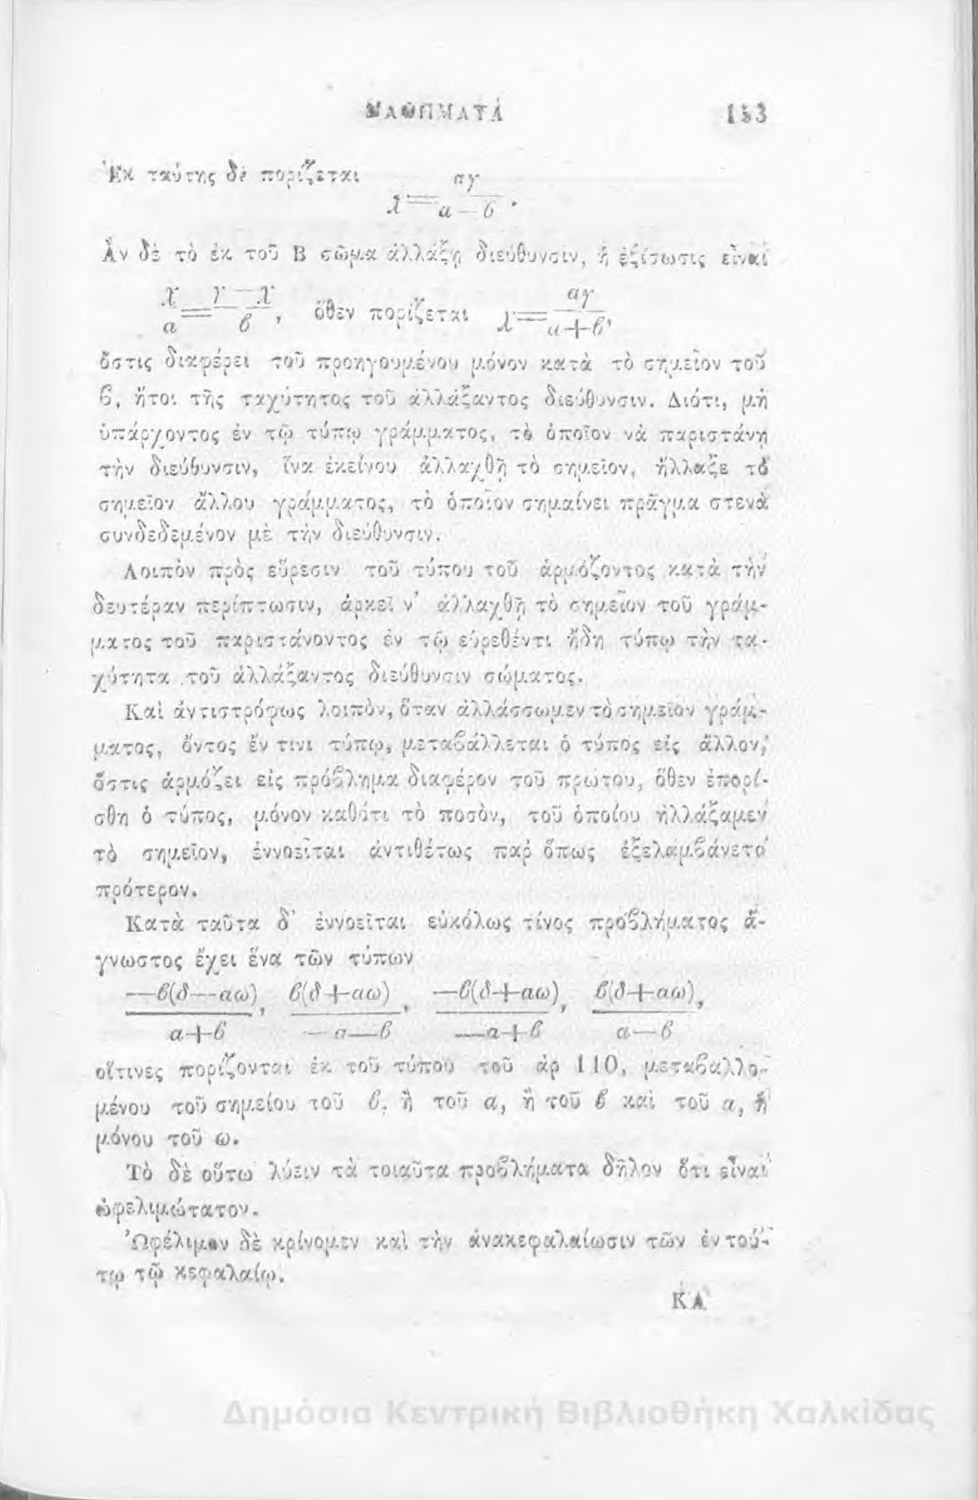 ΜΑΘΗΜΑΤΑ 153
Ἐκ ταύτης δὲ πορίζεται χ = αγ / α — β .
Ἂν δὲ τὸ ἐκ τοῦ Β σῶμα ἀλλάξῃ διεύθυνσιν, ἡ ἐξίσωσις εἶναι
χ / α = γ — χ / β , ὅθεν πορίζεται χ = αγ / α+β,
ὅστις διαφέρει τοῦ προηγουμένου μόνον κατὰ τὸ σημεῖον τοῦ
β, ἤτοι τῆς ταχύτητος τοῦ ἀλλάξαντος διεύθυνσιν. Διότι, μὴ
ὑπάρχοντος ἐν τῷ τύπῳ γράμματος, τὸ ὁποῖον νὰ παριστάνῃ
τὴν διεύθυνσιν, ἵνα ἐκείνου ἀλλαχθῇ τὸ σημεῖον, ἤλλαξε τὸ
σημεῖον ἄλλου γράμματος, τὸ ὁποῖον σημαίνει πρᾶγμα στενὰ
συνδεδεμένον μὲ τὴν διεύθυνσιν.
Λοιπὸν πρὸς εὕρεσιν τοῦ τύπου τοῦ ἁρμόζοντος κατὰ τὴν
δευτέραν περίπτωσιν, ἀρκεῖ ν' ἀλλαχθῇ τὸ σημεῖον τοῦ γράμ-
ματος τοῦ παριστάνοντος ἐν τῷ εὑρεθέντι ἤδη τύπῳ τὴν τα-
χύτητα τοῦ ἀλλάξαντος διεύθυνσιν σώματος.
Καὶ ἀντιστρόφως λοιπὸν, ὅταν ἀλλάσσωμεν τὸ σημεῖον γράμ-
ματος, ὄντος ἔν τινι τύπῳ, μεταβάλλεται ὁ τύπος εἰς ἄλλον,
ὅστις ἁρμόζει εἰς πρόβλημα διαφέρον τοῦ πρώτου, ὅθεν ἐπορί-
σθη ὁ τύπος, μόνον καθότι τὸ ποσὸν, τοῦ ὁποίου ἠλλάξαμεν
τὸ σημεῖον, ἐννοεῖται ἀντιθέτως παρ ὅπως ἐξελαμβάνετο
πρότερον.
Κατὰ ταῦτα δ' ἐννοεῖται εὐκόλως τίνος προβλήματος ἄ-
γνωστος ἔχει ἕνα τῶν τύπων
—β(δ—αω) / α+β , β(δ+αω) / —α—β , —β(δ+αω) / —α+β , β(δ+αω) / α—β ,
οἵτινες πορίζονται ἐκ τοῦ τύπου τοῦ ἀρ 110, μεταβαλλο-
μένου τοῦ σημείου τοῦ β, ἢ τοῦ α, ἢ τοῦ β καὶ τοῦ α, ἢ
μόνου τοῦ ω.
Τὸ δὲ οὕτω λύειν τὰ τοιαῦτα προβλήματα δῆλον ὅτι εἶναι
ὠφελιμώτατον.
Ὠφέλιμον δὲ κρίνομεν καὶ τὴν ἀνακεφαλαίωσιν τῶν ἐν τού-
τῳ τῷ κεφαλαίῳ.
ΚΑ
Δημόσια Κεντρική Βιβλιοθήκη Χαλκίδας